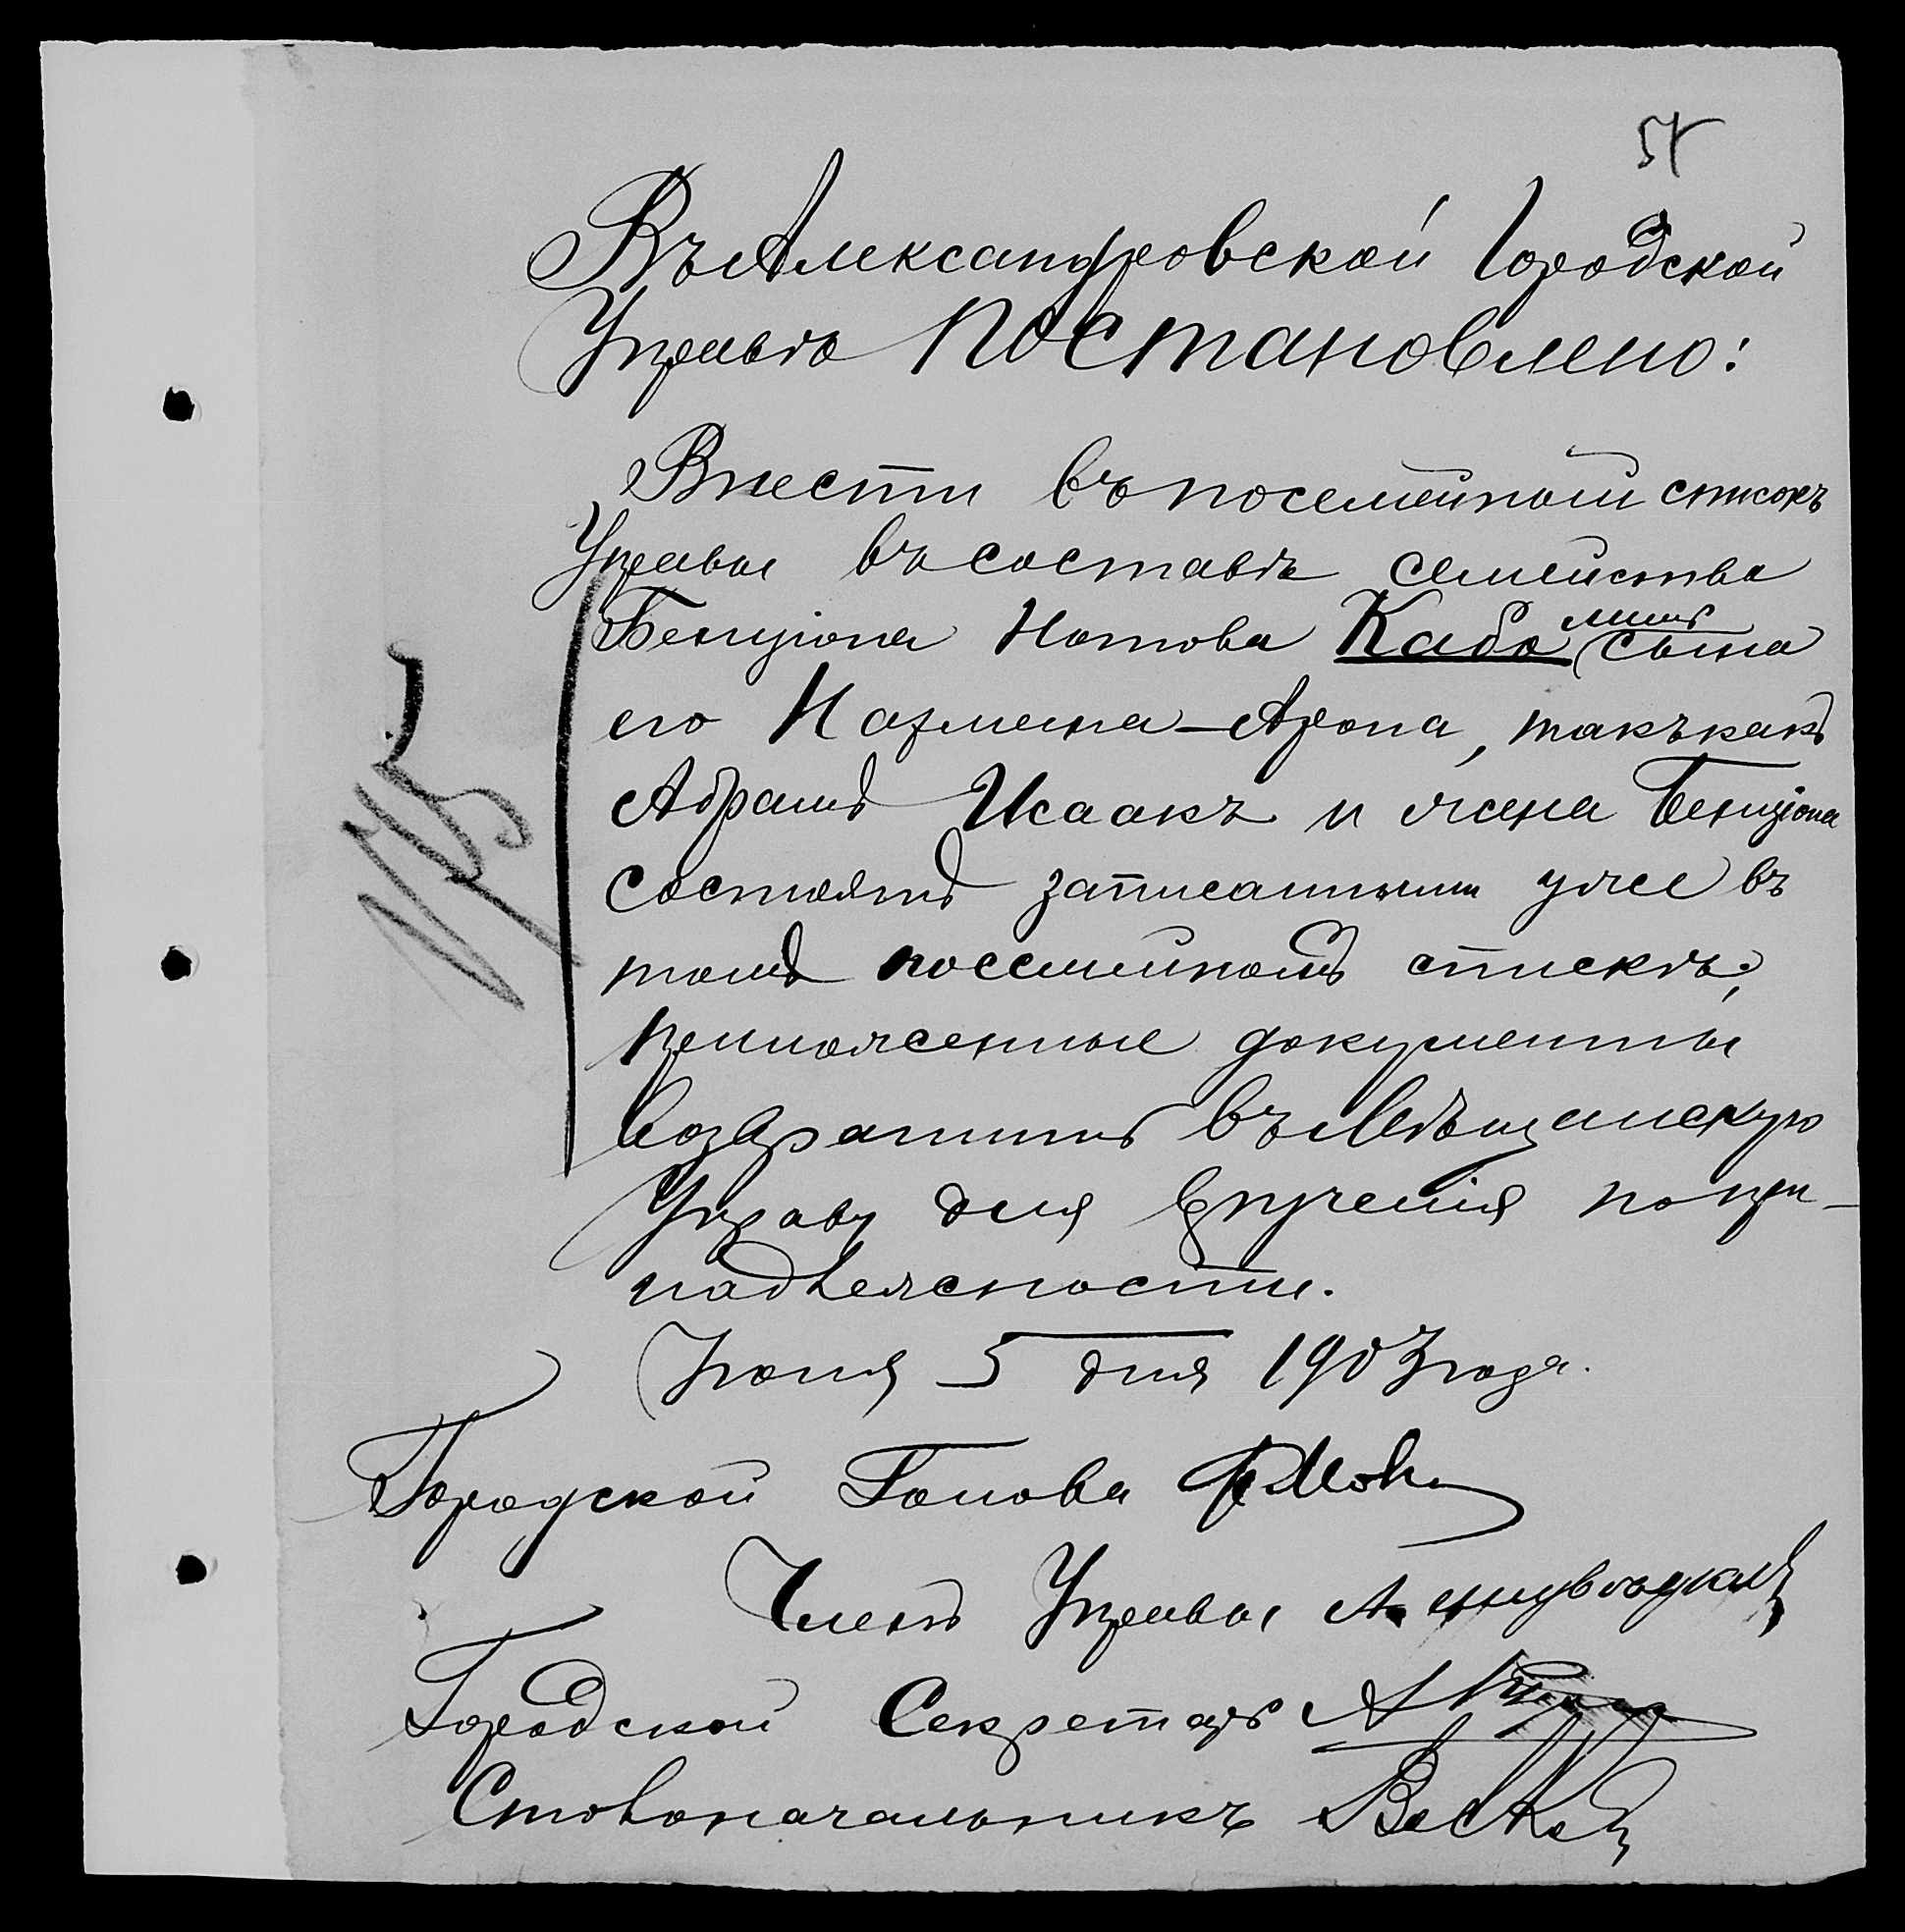 57
Въ Александровской Городской
Управѣ Постановлено:
Внести въ посемейный списокъ
Управы въ составъ семейства
Бенціона Нотова Кабо лишь сына
его Калмена-Арона, такъ какъ
Абрамъ Исаакъ и жена Бенціона
состоятъ записанными уже въ
томъ посемейномъ спискѣ;
приложенные документы
возвратить въ Мѣщанскую
Управу для врученія по при-
надлежности.
Іюня 5 дня 1903 года.
Городской Голова
Членъ Управы А.
Городской Секретарь А
Столоначальникъ